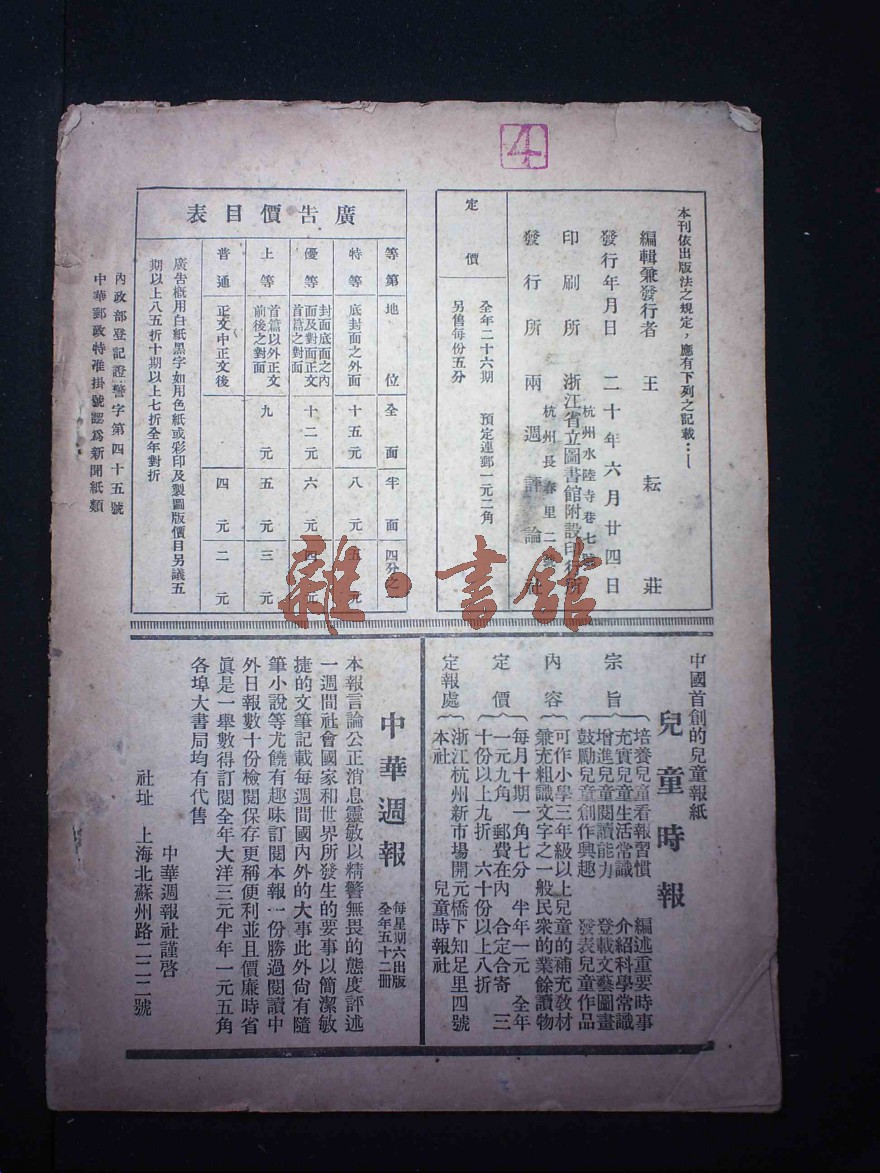 4
本刊依出版法之規定，應有下列之記載…
編輯兼發行者 王耘莊
杭州水陸寺巷七號
發行年月日 二十年六月廿四日
印刷所 浙江省立圖書館附設印行所
杭州長春里二號
發行所 兩週評論社
定價
全年二十六期 預定連郵一元二角
另售每份五分
廣告價目表
等第 地位 全面 半面 四分之
特等 底封面之外面 十五元 八元 五元
優等 封面底面之內面及對面正文首篇之對面 十二元 六元 四元
上等 首篇以外正文前後之對面 九元 五元 三元
普通 正文中正文後 四元 二元
廣告概用白紙黑字如用色紙或彩印及製圖版價目另議五
期以上八五折十期以上七折全年對折
內政部登記證警字第四十五號
中華郵政特准掛號認爲新聞紙類
中國首創的兒童報紙
兒童時報
宗旨
培養兒童看報習慣 編述重要時事
充實兒童生活常識 介紹科學常識
增進兒童閱讀能力 登載文藝圖畫
鼓勵兒童創作興趣 發表兒童作品
內容
可作小學三年級以上兒童的補充教材
兼充粗識文字之一般民衆的業餘讀物
定價
每月十期一角七分 半年一元 全年
一元九角 郵費在內 合定合寄 三
十份以上九折 六十份以上八折
定報處
浙江杭州新市場開元橋下知足里四號
本社 兒童時報社
中華週報
每星期六出版
全年五十二冊
本報言論公正消息靈敏以精警無畏的態度評述
一週間社會國家和世界所發生的要事以簡潔敏
捷的文筆記載每週間國內外的大事此外尙有隨
筆小說等尤饒有趣味訂閱本報一份勝過閱讀中
外日報數十份檢閱保存更稱便利並且價廉時省
眞是一舉數得訂閱全年大洋三元半年一元五角
各埠大書局均有代售
中華週報社謹啓
社址 上海北蘇州路二二二號
雜·書館